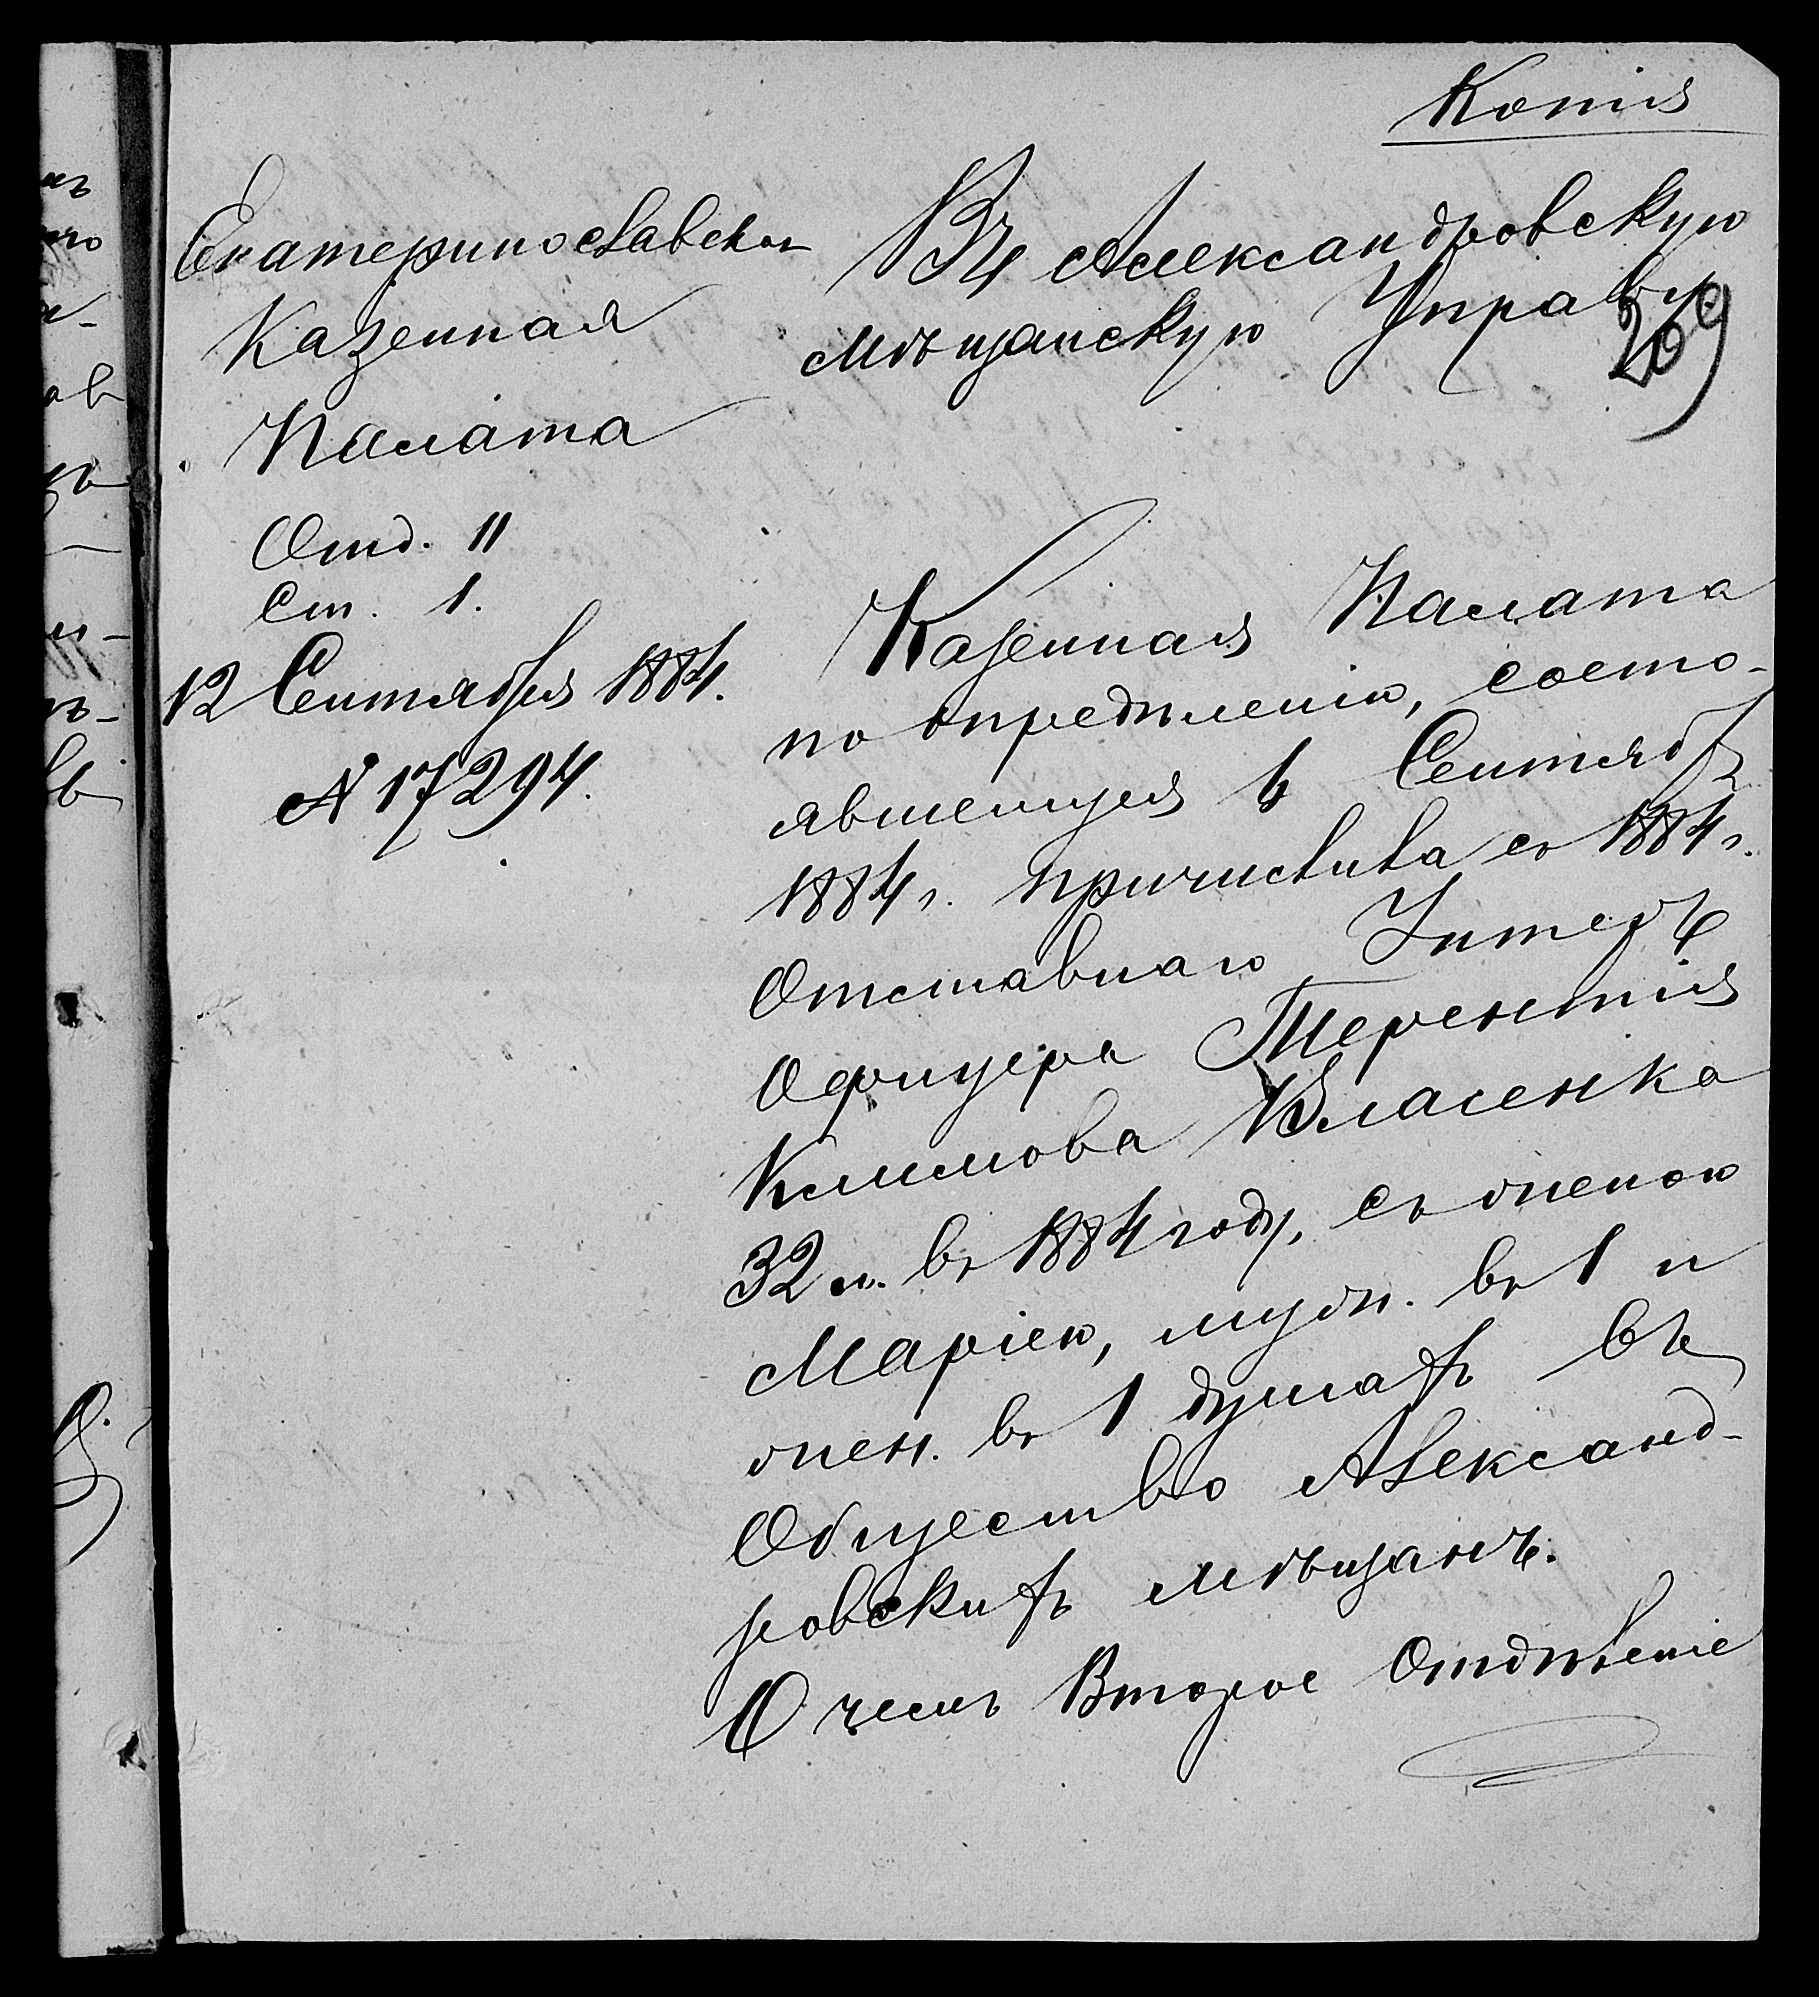 Копія
Екатеринославская
Казенная
Палата
Отд. II
Ст. 1.
12 Сентября 1884.
№ 17294.
Въ Александровскую
мѣщанскую Управу
209
Казенная Палата
по опредѣленію, состо-
явшемуся 6 Сентября
1884 г. причислила съ 1884 г.
Отставнаго Унтеръ
Офицера Терентія
Климова Власенка
32 л. въ 1884 году, съ женою
Маріею, муж. въ 1 и
жен. въ 1 душахъ въ
Общество Александ-
ровскихъ мѣщанъ.
О чемъ Второе Отдѣленіе